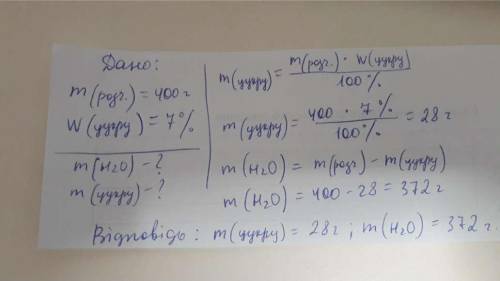 Дано:
m(розч.) = 400 г
W(цукру) = 7%
m(H2O) - ?
m(цукру) - ?
m(цукру) = m(розч.) · W(цукру) / 100%
m(цукру) = 400 · 7% / 100% = 28 г
m(H2O) = m(розч) - m(цукру)
m(H2O) = 400 - 28 = 372 г
Відповідь: m(цукру) = 28г; m(H2O) = 372 г.